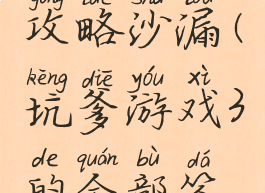 gōng lüè shā lòu
攻略沙漏(
kēng diē yóu xì
坑爹游戏3
de quán bù dá
的全部答